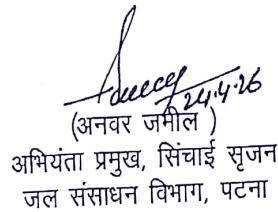 24.4.26
(अनवर जमील )
अभियंता प्रमुख, सिंचाई सृजन
जल संसाधन विभाग, पटना